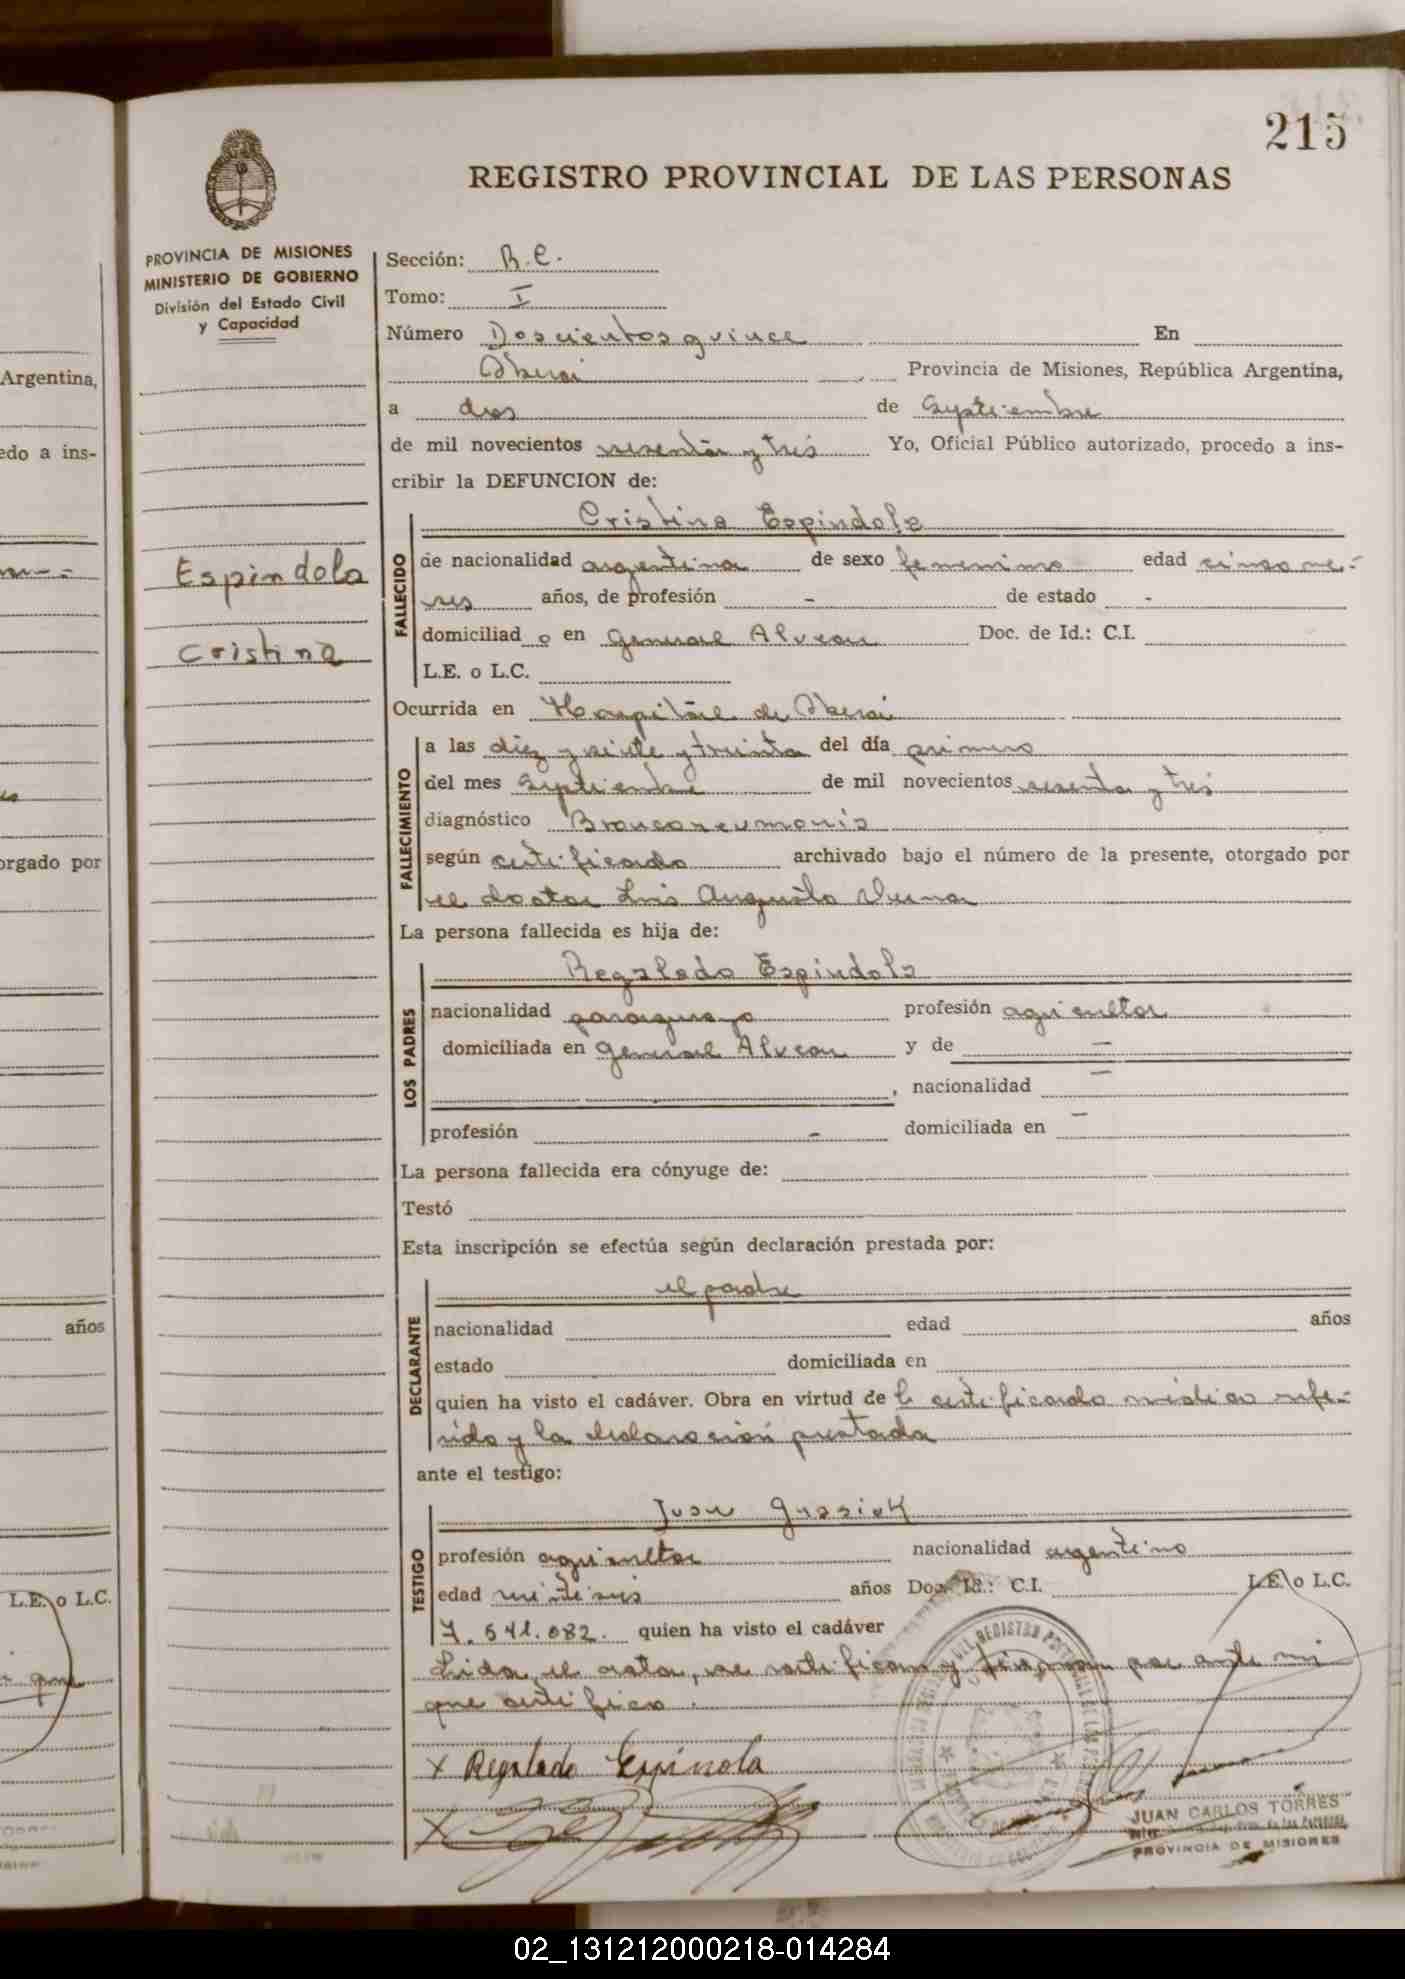 215
REGISTRO PROVINCIAL DE LAS PERSONAS
PROVINCIA DE MISIONES
MINISTERIO DE GOBIERNO
División del Estado Civil
y Capacidad
Espindola
Cristina
Sección: R.C.
Tomo: I
Número Doscientos quince En
Oberá Provincia de Misiones, República Argentina,
a dos de Septiembre
de mil novecientos sesenta y tres Yo, Oficial Público autorizado, procedo a ins-
cribir la DEFUNCION de:
Cristina Espindola
FALLECIDO
de nacionalidad argentina de sexo femenino edad cinco me-
ses años, de profesión - de estado -
domiciliad o en General Alvear Doc. de Id.: C.I.
L.E. o L.C.
Ocurrida en Hospital de Oberá
FALLECIMIENTO
a las diez y siete y treinta del día primero
del mes Septiembre de mil novecientos sesenta y tres
diagnóstico Bronconeumonia
según certificado archivado bajo el número de la presente, otorgado por
el doctor Luis Augusto
La persona fallecida es hija de:
LOS PADRES
Regalado Espindola
nacionalidad paraguayo profesión agricultor
domiciliada en General Alvear y de -
, nacionalidad -
profesión - domiciliada en -
La persona fallecida era cónyuge de:
Testó
Esta inscripción se efectúa según declaración prestada por:
DECLARANTE
el padre
nacionalidad edad años
estado domiciliada en
quien ha visto el cadáver. Obra en virtud de l certificado médico refe-
rido y la declaración prestada
ante el testigo:
TESTIGO
Juan
profesión agricultor nacionalidad argentino
edad veinteseis años Doc. Id.: C.I. L.E. o L.C.
7.541.082. quien ha visto el cadáver
Lida el acta, se ratifican y firman por ante mi
que certifico.
x Regalado Espínola
x
JUAN CARLOS TORRES
PROVINCIA DE MISIONES
Argentina,
edo a ins-
orgado por
años
L.E. o L.C.
que
02_131212000218-014284